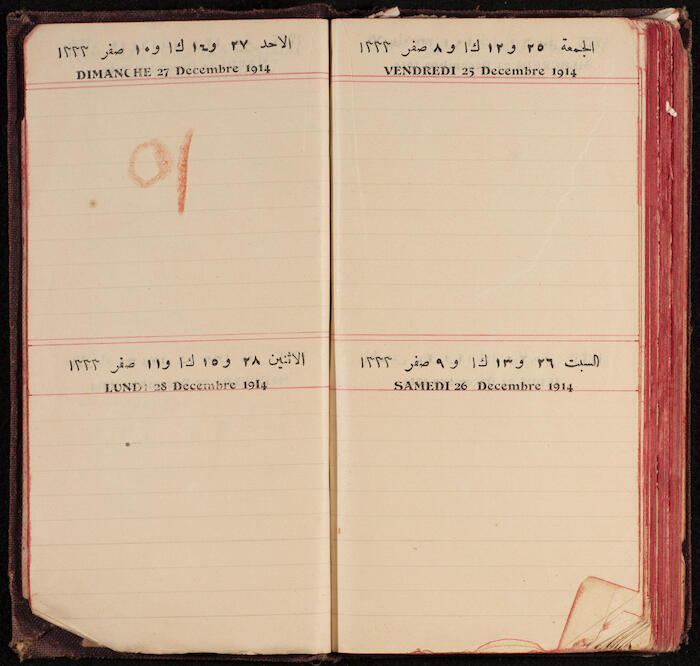 الجمعة ٢٥ و١٢ ك١ و٨ صفر ١٣٣٣
VENDREDI 25 Decembre 1914
السبت ٢٦ و١٣ ك١ و٩ صفر ١٣٣٣
SAMEDI 26 Decembre 1914
الاحد ٢٧ و١٤ ك١ و١٠ صفر ١٣٣٣
DIMANCHE 27 Decembre 1914
الاثنين ٢٨ و١٥ ك١ و١١ صفر ١٣٣٣
LUNDI 28 Decembre 1914